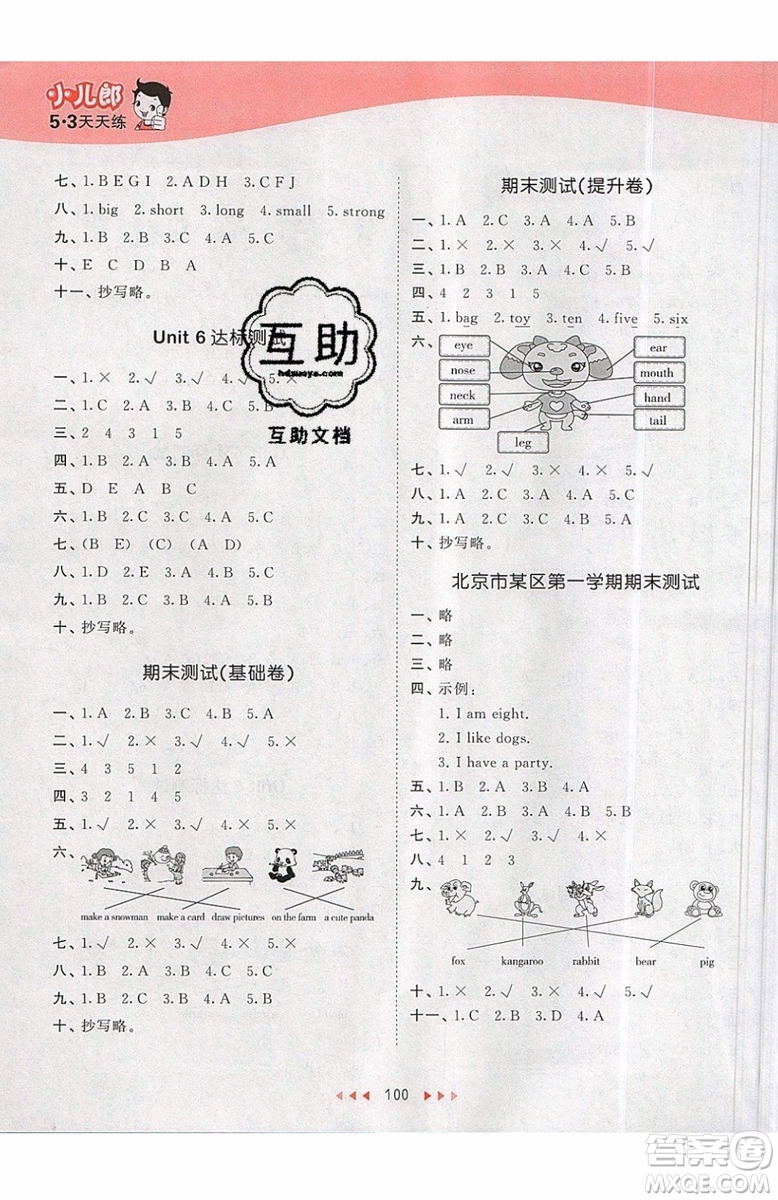 小儿郎
5·3天天练
七、1.B E G I 2.A D H 3.C F J
八、1. big 2. short 3. long 4. small 5. strong
九、1.B 2.A 3.A 4.B 5.C
十、E C D B A
十一、抄写略。
Unit 6 达标测试
一、1.× 2.√ 3.√ 4.√ 5.×
二、1.C 2.B 3.C 4.A 5.A
三、2 4 3 1 5
四、1.B 2.B 3.A 4.B 5.A
五、D E A B C
六、1.B 2.C 3.B 4.A 5.C
七、(B E) (C) (A D)
八、1.B 2.D 3.C 4.A
九、1.B 2.A 3.C 4.B 5.C
十、抄写略。
期末测试(基础卷)
一、1.A 2.B 3.C 4.B 5.A
二、1.√ 2.× 3.√ 4.√ 5.×
三、4 3 5 1 2
四、3 2 1 4 5
五、1.√ 2.× 3.√ 4.√ 5.×
六、
make a snowman make a card draw pictures on the farm a cute panda
七、1.× 2.√ 3.√ 4.× 5.×
八、1.B 2.A 3.B 4.A 5.C
九、1.B 2.A 3.B 4.B 5.A
十、抄写略。
期末测试(提升卷)
一、1.A 2.C 3.A 4.A 5.B
二、1.× 2.× 3.√ 4.√ 5.√
三、1.B 2.C 3.A 4.B 5.A
四、4 2 3 1 5
五、1. bag 2. toy 3. ten 4. five 5. six
六、
eye ear
nose mouth
neck hand
arm tail
leg
七、1.√ 2.√ 3.× 4.× 5.√
八、1.A 2.C 3.A 4.A 5.C
九、1.A 2.B 3.B 4.A 5.B
十、抄写略。
北京市某区第一学期期末测试
一、略
二、略
三、略
四、示例：
1. I am eight.
2. I like dogs.
3. I have a party.
五、1.B 2.A 3.B 4.A
六、1.A 2.B 3.A 4.B 5.B
七、1.√ 2.× 3.√ 4.× 5.√
八、4 1 2 3
九、
fox kangaroo rabbit bear pig
十、1.× 2.√ 3.× 4.√ 5.√
十一、1.C 2.B 3.D 4.A
100
互助
hdzuoye.com
互助文档
答案圈
MXQE.COM